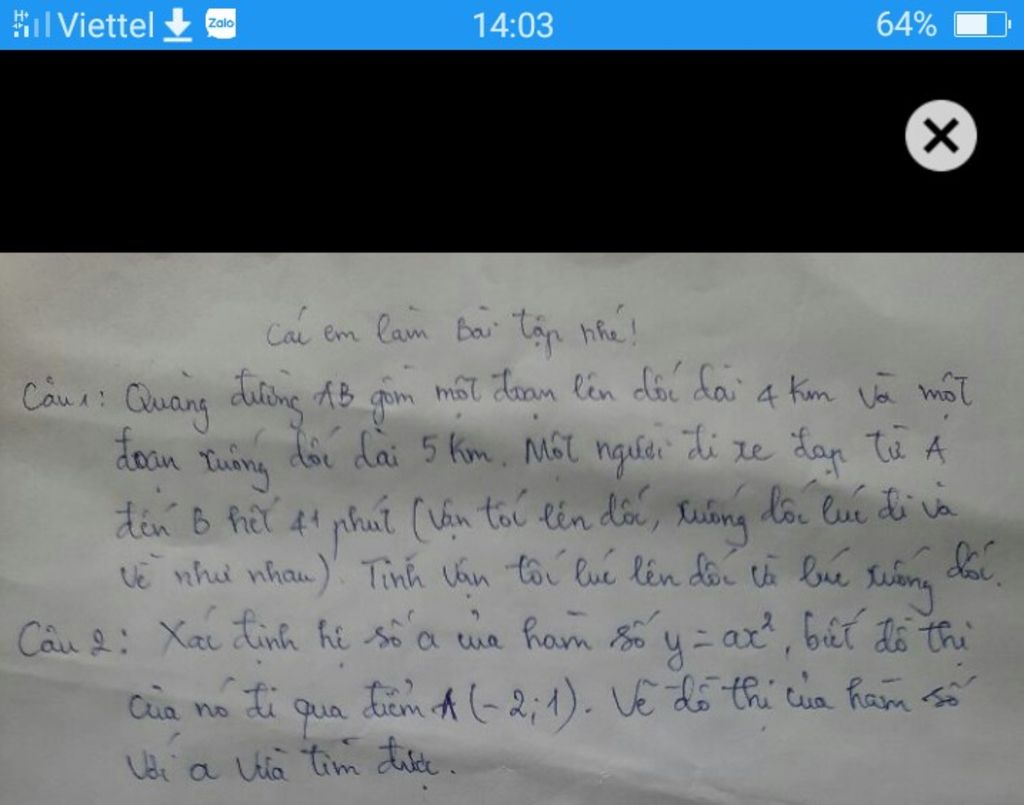 H+ Viettel Zalo 14:03 64%
Các em làm bài tập nhé!
Câu 1: Quảng đường AB gồm một đoạn lên dốc dài 4 km và một
đoạn xuống dốc dài 5 km. Một người đi xe đạp từ A
đến B hết 41 phút (vận tốc lên dốc, xuống dốc lúc đi và
về như nhau). Tính vận tốc lúc lên dốc và lúc xuống dốc.
Câu 2: Xác định hệ số a của hàm số y = ax², biết đồ thị
của nó đi qua điểm A (-2; 1). Vẽ đồ thị của hàm số
với a vừa tìm được.